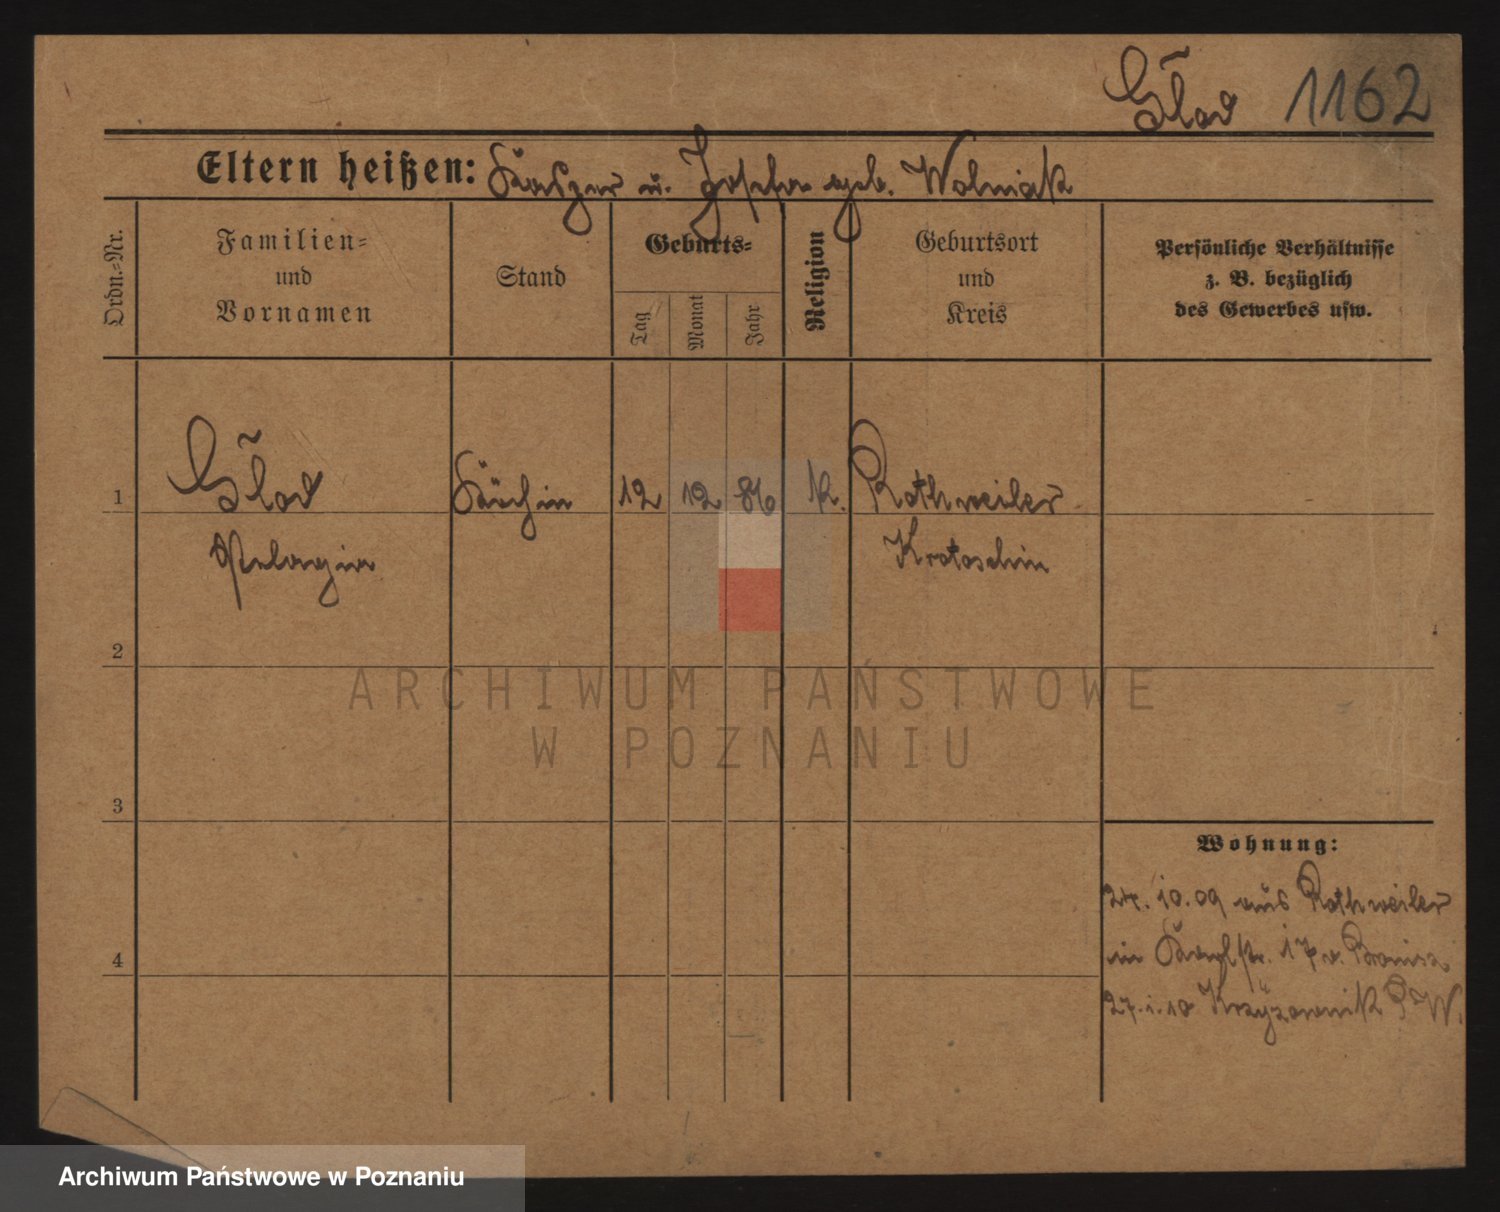 Głod 1162
Eltern heißen: Kasper u. Josefa geb. Wolniak
Ordn.=Nr.
Familien=
und
Vornamen
Stand
Geburts=
Tag
Monat
Jahr
Religion
Geburtsort
und
Kreis
Persönliche Verhältnisse
z. B. bezüglich
des Gewerbes usw.
1 Głod Köchin 12 12 86 k. Rothweiler
Pelagia Krotoschin
2
3
4
Wohnung:
24.10.09 aus Rothweiler
in Karlstr. 17 v.
27.1.10 W.
ARCHIWUM PAŃSTWOWE
W POZNANIU
Archiwum Państwowe w Poznaniu